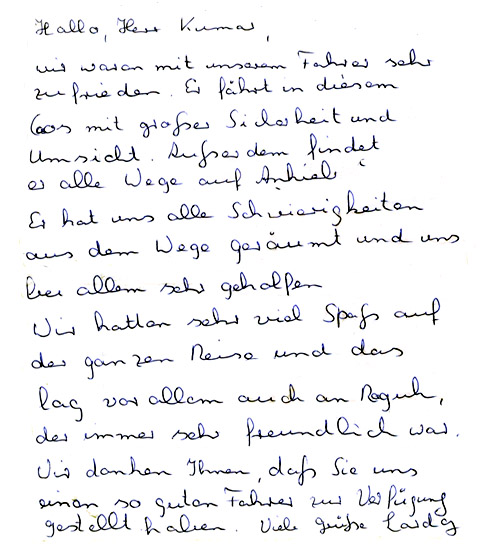 Hallo, Herr Kumar,
wir waren mit unserem Fahrer sehr
zufrieden. Er fährt in diesem
mit großer Sicherheit und
Umsicht. Außerdem findet
er alle Wege auf Anhieb
Er hat uns alle Schwierigkeiten
aus dem Wege geräumt und uns
bei allem sehr geholfen
Wir hatten sehr viel Spaß auf
der ganzen Reise und das
lag vor allem auch an
der immer sehr freundlich war.
Wir danken Ihnen, daß Sie uns
einen so guten Fahrer zur Verfügung
gestellt haben. Viele Grüße